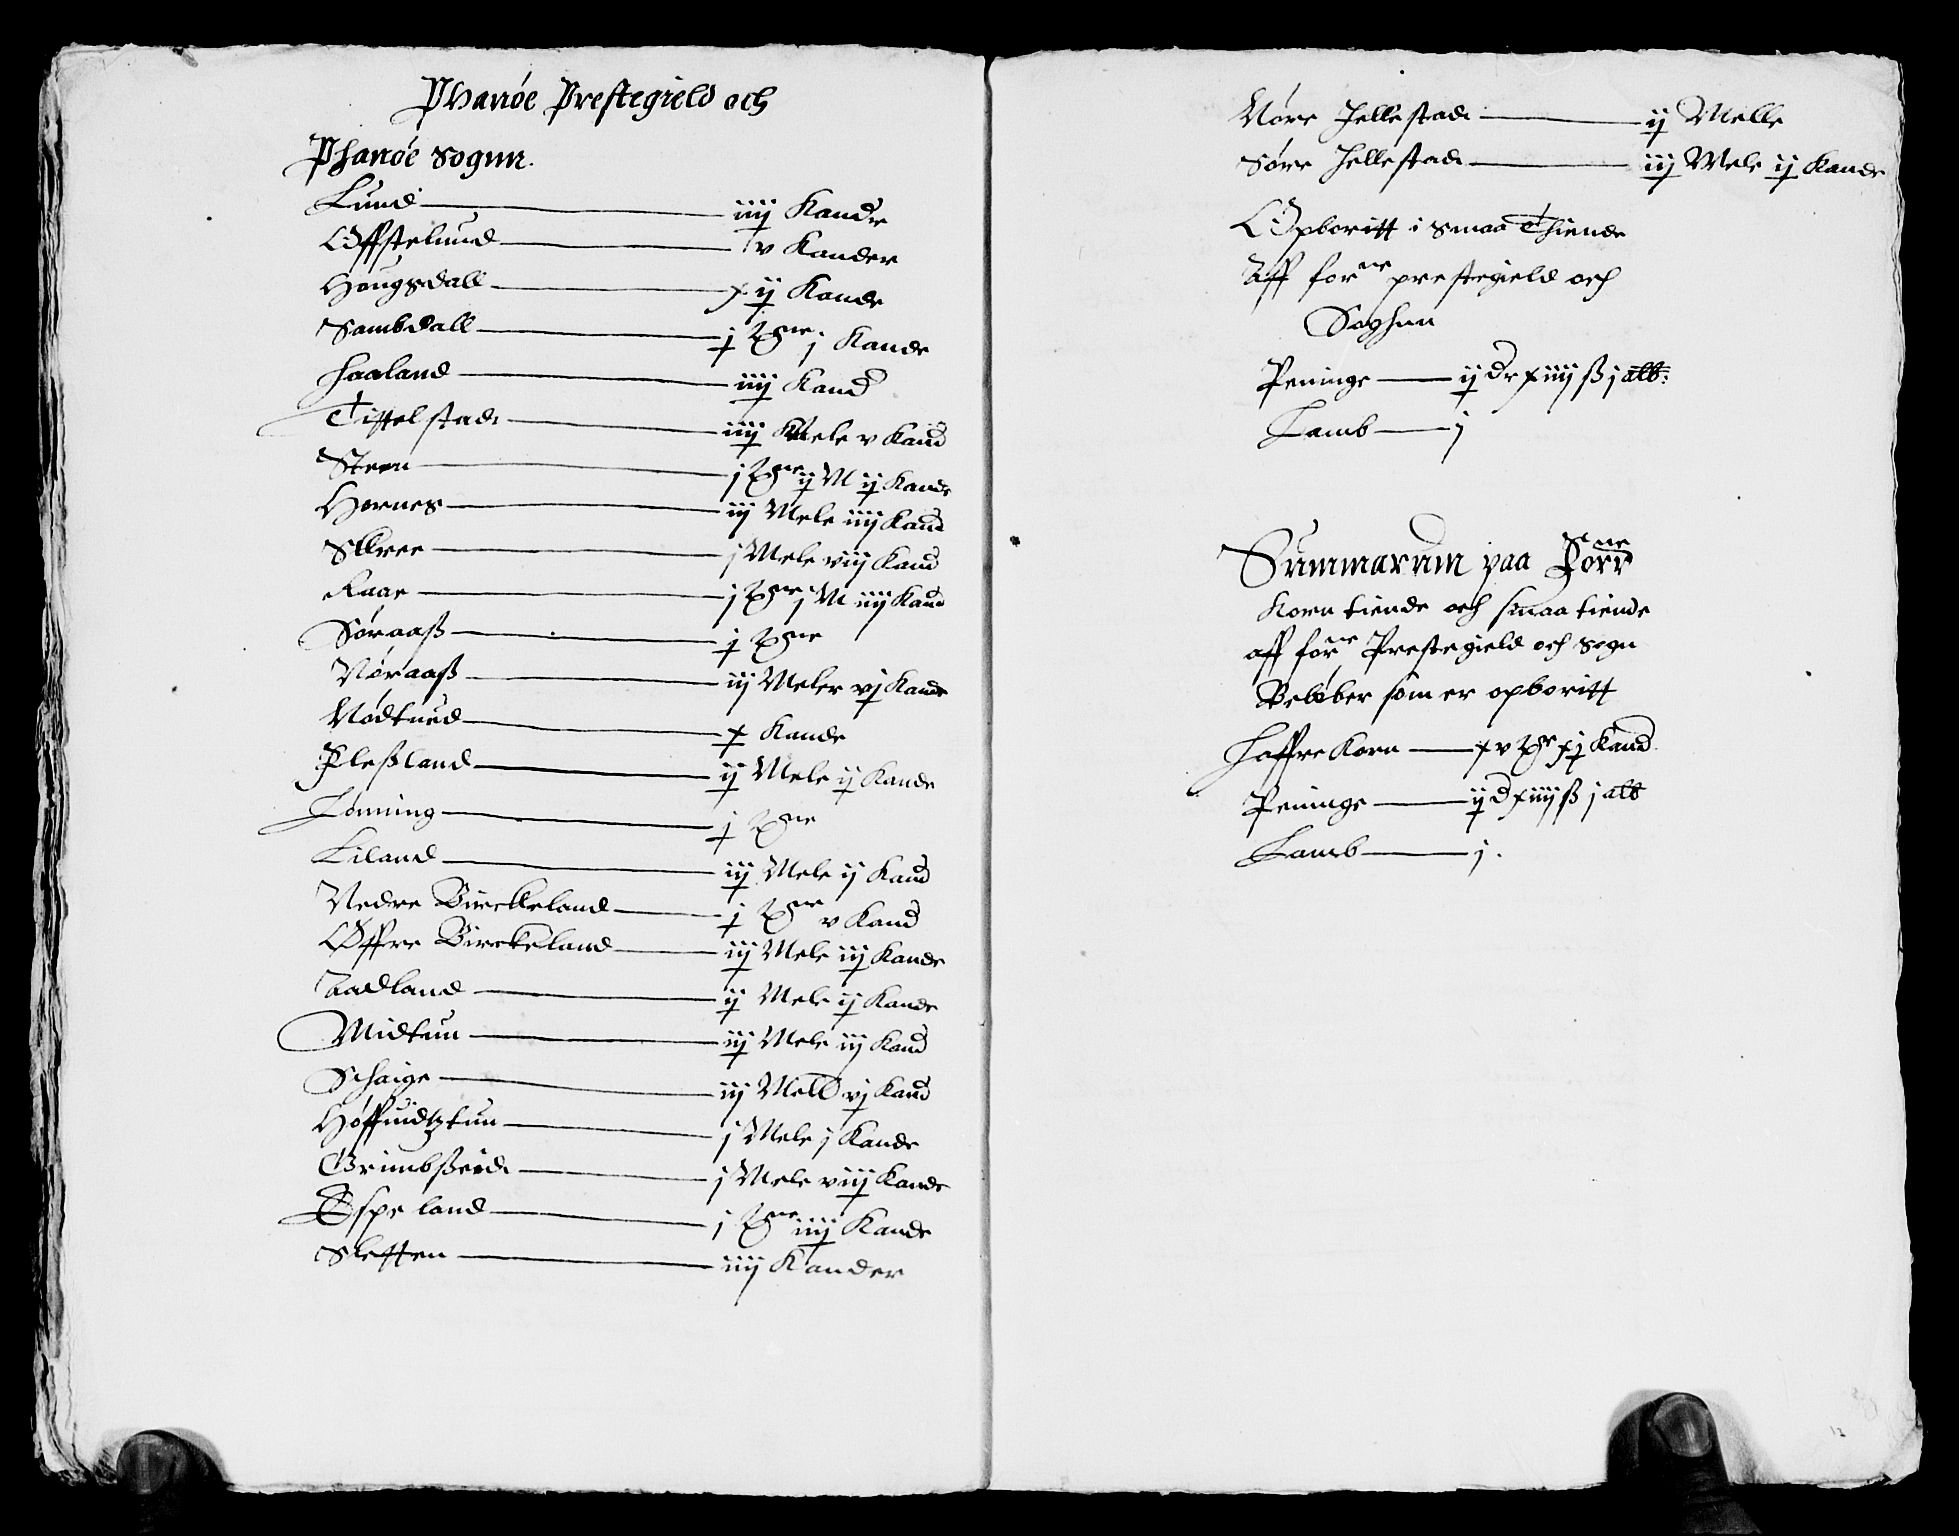 Phanøe Prestegield och
Phanøe Sognn.
Lund — iiij Kande
Offstelund — v Kander
Hougsdall — xij Kande
Sambdall — j Tne j Kande
Haaland — iiij Kand
Tittelstad — iiij Mele v Kand
Steen — j Tne ij M ij Kande
Hornes — iij Mele iiij Kand
Skree — j Mele viij Kand
Raae — j Tne j M iiij Kand
Søraaß — j Tne
Nøraaß — iij Meler vj Kande
Nødtued — x Kande
Fleßland — ij Mele ij Kande
Lønning — j Tne
Liland — iij Mele ij Kand
Nedre Birckeland — j Tne v Kand
Øffre Birckeland — iij Mele iij Kande
Aadland — ij Mele ij Kande
Midtun — iij Mele iij Kand
Schaige — iij Mele vj Kand
Høffuidtztun — j Mele j Kande
Grimbßeid — j Mele viiij Kande
Espeland — j Tne iiij Kande
Sletten — iiij Kander
Nøre Jellestad — ij Melle
Søre Jellestad — iij Mele ij Kande
Opboritt i smaa Thiende
Aff forne prestegield och
Soghnn
Peninge — ij dr xiiij ß j alb:
Lamb — j
Summarum paa Forne
Korn tiende och smaa tiende
aff forne Prestegield och Sogn
Beløber som er opboritt
Haffre Korn — xv Tne xj Kand
Peninge — ij d xiiij ß j alb
Lamb — j.
12